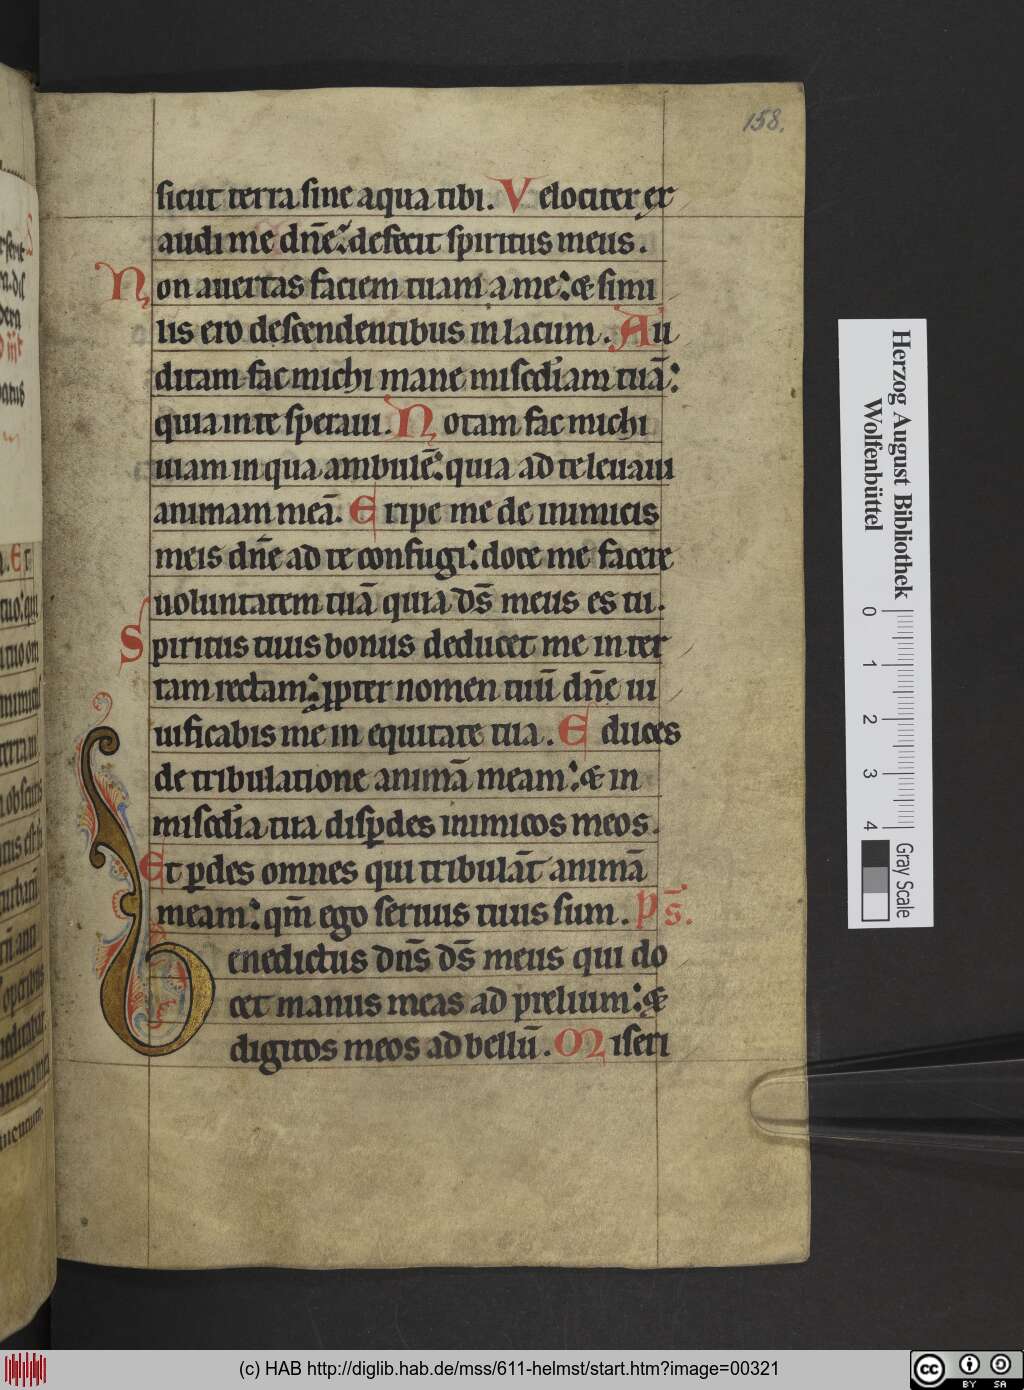 158.
sicut terra sine aqua tibi. Velociter ex
audi me dn̄e: defecit spiritus meus.
Non auertas faciem tuam a me: & simi
lis ero descendentibus in lacum. Au
ditam fac michi mane misc̄diam tuā:
quia in te speraui. Notam fac michi
uiam in qua ambulē: quia ad te leuaui
animam meā. Eripe me de inimicis
meis dn̄e ad te confugi: doce me facere
uoluntatem tuā quia ds̄ meus es tu.
Spiritus tuus bonus deducet me in ter
ram rectam: ꝓpter nomen tuū dn̄e ui
uificabis me in equitate tua. Educes
de tribulatione animā meam: & in
misc̄dia tua disꝑdes inimicos meos.
Et ꝑdes omnes qui tribulāt animā
meam: qm̄ ego seruus tuus sum. Ps̄.
Benedictus dn̄s ds̄ meus qui do
cet manus meas ad prelium: &
digitos meos ad bellū. Miseri
Herzog August Bibliothek
Wolfenbüttel
0 1 2 3 4
Gray Scale
(c) HAB http://diglib.hab.de/mss/611-helmst/start.htm?image=00321
cc BY SA